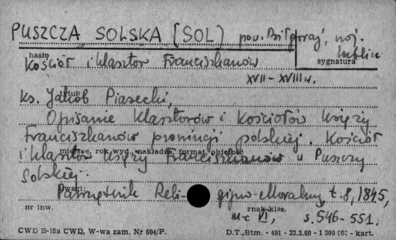 PUSZCZA SOLSKA [SOL] pow. Biłgoraj, woj. Lublin
hasło
sygnatura
Kościół i klasztor Franciszkanów
XVII - XVIII w.
autor
ks. Jakob Piasecki,
Opisanie Klasztorów i Kościołów Księży
Franciszkanów prowincji polskiej. Kościół
miejsce, rok wyd., nakładca, format, objętość
i klasztor Księży Franciszkanów w Puszczy
Solskiej.
uwagi
Pamiętnik Reli- gijno-Moralny, t. 8, 1845,
nr inw.
znak klas.
s. 546-551.
CWD B-15a CWD, W-wa zam, Nr 604/P.
D.T., Btm. - 491 - 23.2.60 - 1 200 000 - kart.